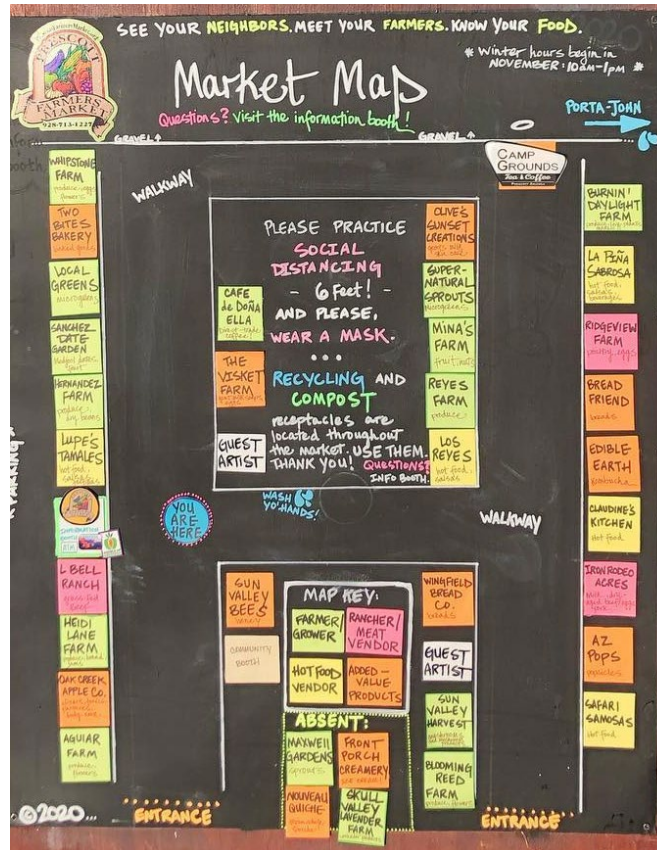 SEE YOUR NEIGHBORS. MEET YOUR FARMERS. KNOW YOUR FOOD.
PRESCOTT
FARMERS
MARKET
928-713-1227
* Winter hours begin in
NOVEMBER: 10am-1pm *
Market Map
Questions? Visit the information booth!
PORTA-JOHN
GRAVEL
GRAVEL
CAMP
GROUNDS
Tea & Coffee
WALKWAY
WHIPSTONE
FARM
produce, eggs
flowers
TWO
BITES
BAKERY
LOCAL
GREENS
microgreens
SANCHEZ
DATE
GARDEN
HERNANDEZ
FARM
produce
dry beans
LUPE'S
TAMALES
hot food,
L BELL
RANCH
grass fed
beef
HEIDI
LANE
FARM
OAK CREEK
APPLE CO.
AGUIAR
FARM
produce
flowers
PLEASE PRACTICE
SOCIAL
DISTANCING
- 6 Feet! -
AND PLEASE,
WEAR A MASK.
...
RECYCLING AND
COMPOST
receptacles are
located throughout
the market. USE THEM.
THANK YOU! QUESTIONS?
INFO BOOTH.
CAFE
de DOÑA
ELLA
direct-trade
coffee!
THE
VISKET
FARM
GUEST
ARTIST
OLIVE'S
SUNSET
CREATIONS
SUPER-
NATURAL
SPROUTS
microgreens
MINA'S
FARM
REYES
FARM
produce
LOS
REYES
hot food,
salsas
WASH
YO' HANDS!
YOU
ARE
HERE
WALKWAY
BURNIN'
DAYLIGHT
FARM
LA PIÑA
SABROSA
hot food,
RIDGEVIEW
FARM
poultry, eggs
BREAD
FRIEND
breads
EDIBLE
EARTH
kombucha
CLAUDINE'S
KITCHEN
hot food
IRON RODEO
ACRES
AZ
POPS
popsicles
SAFARI
SAMOSAS
hot food
SUN
VALLEY
BEES
honey
COMMUNITY
BOOTH
MAP KEY:
FARMER/
GROWER
RANCHER/
MEAT
VENDOR
HOT FOOD
VENDOR
ADDED-
VALUE
PRODUCTS
ABSENT:
MAXWELL
GARDENS
sprouts
FRONT
PORCH
CREAMERY
NOUVEAU
QUICHE
SKULL
VALLEY
LAVENDER
FARM
WINGFIELD
BREAD
CO.
breads
GUEST
ARTIST
SUN
VALLEY
HARVEST
BLOOMING
REED
FARM
produce, flowers
©2020...
ENTRANCE
ENTRANCE